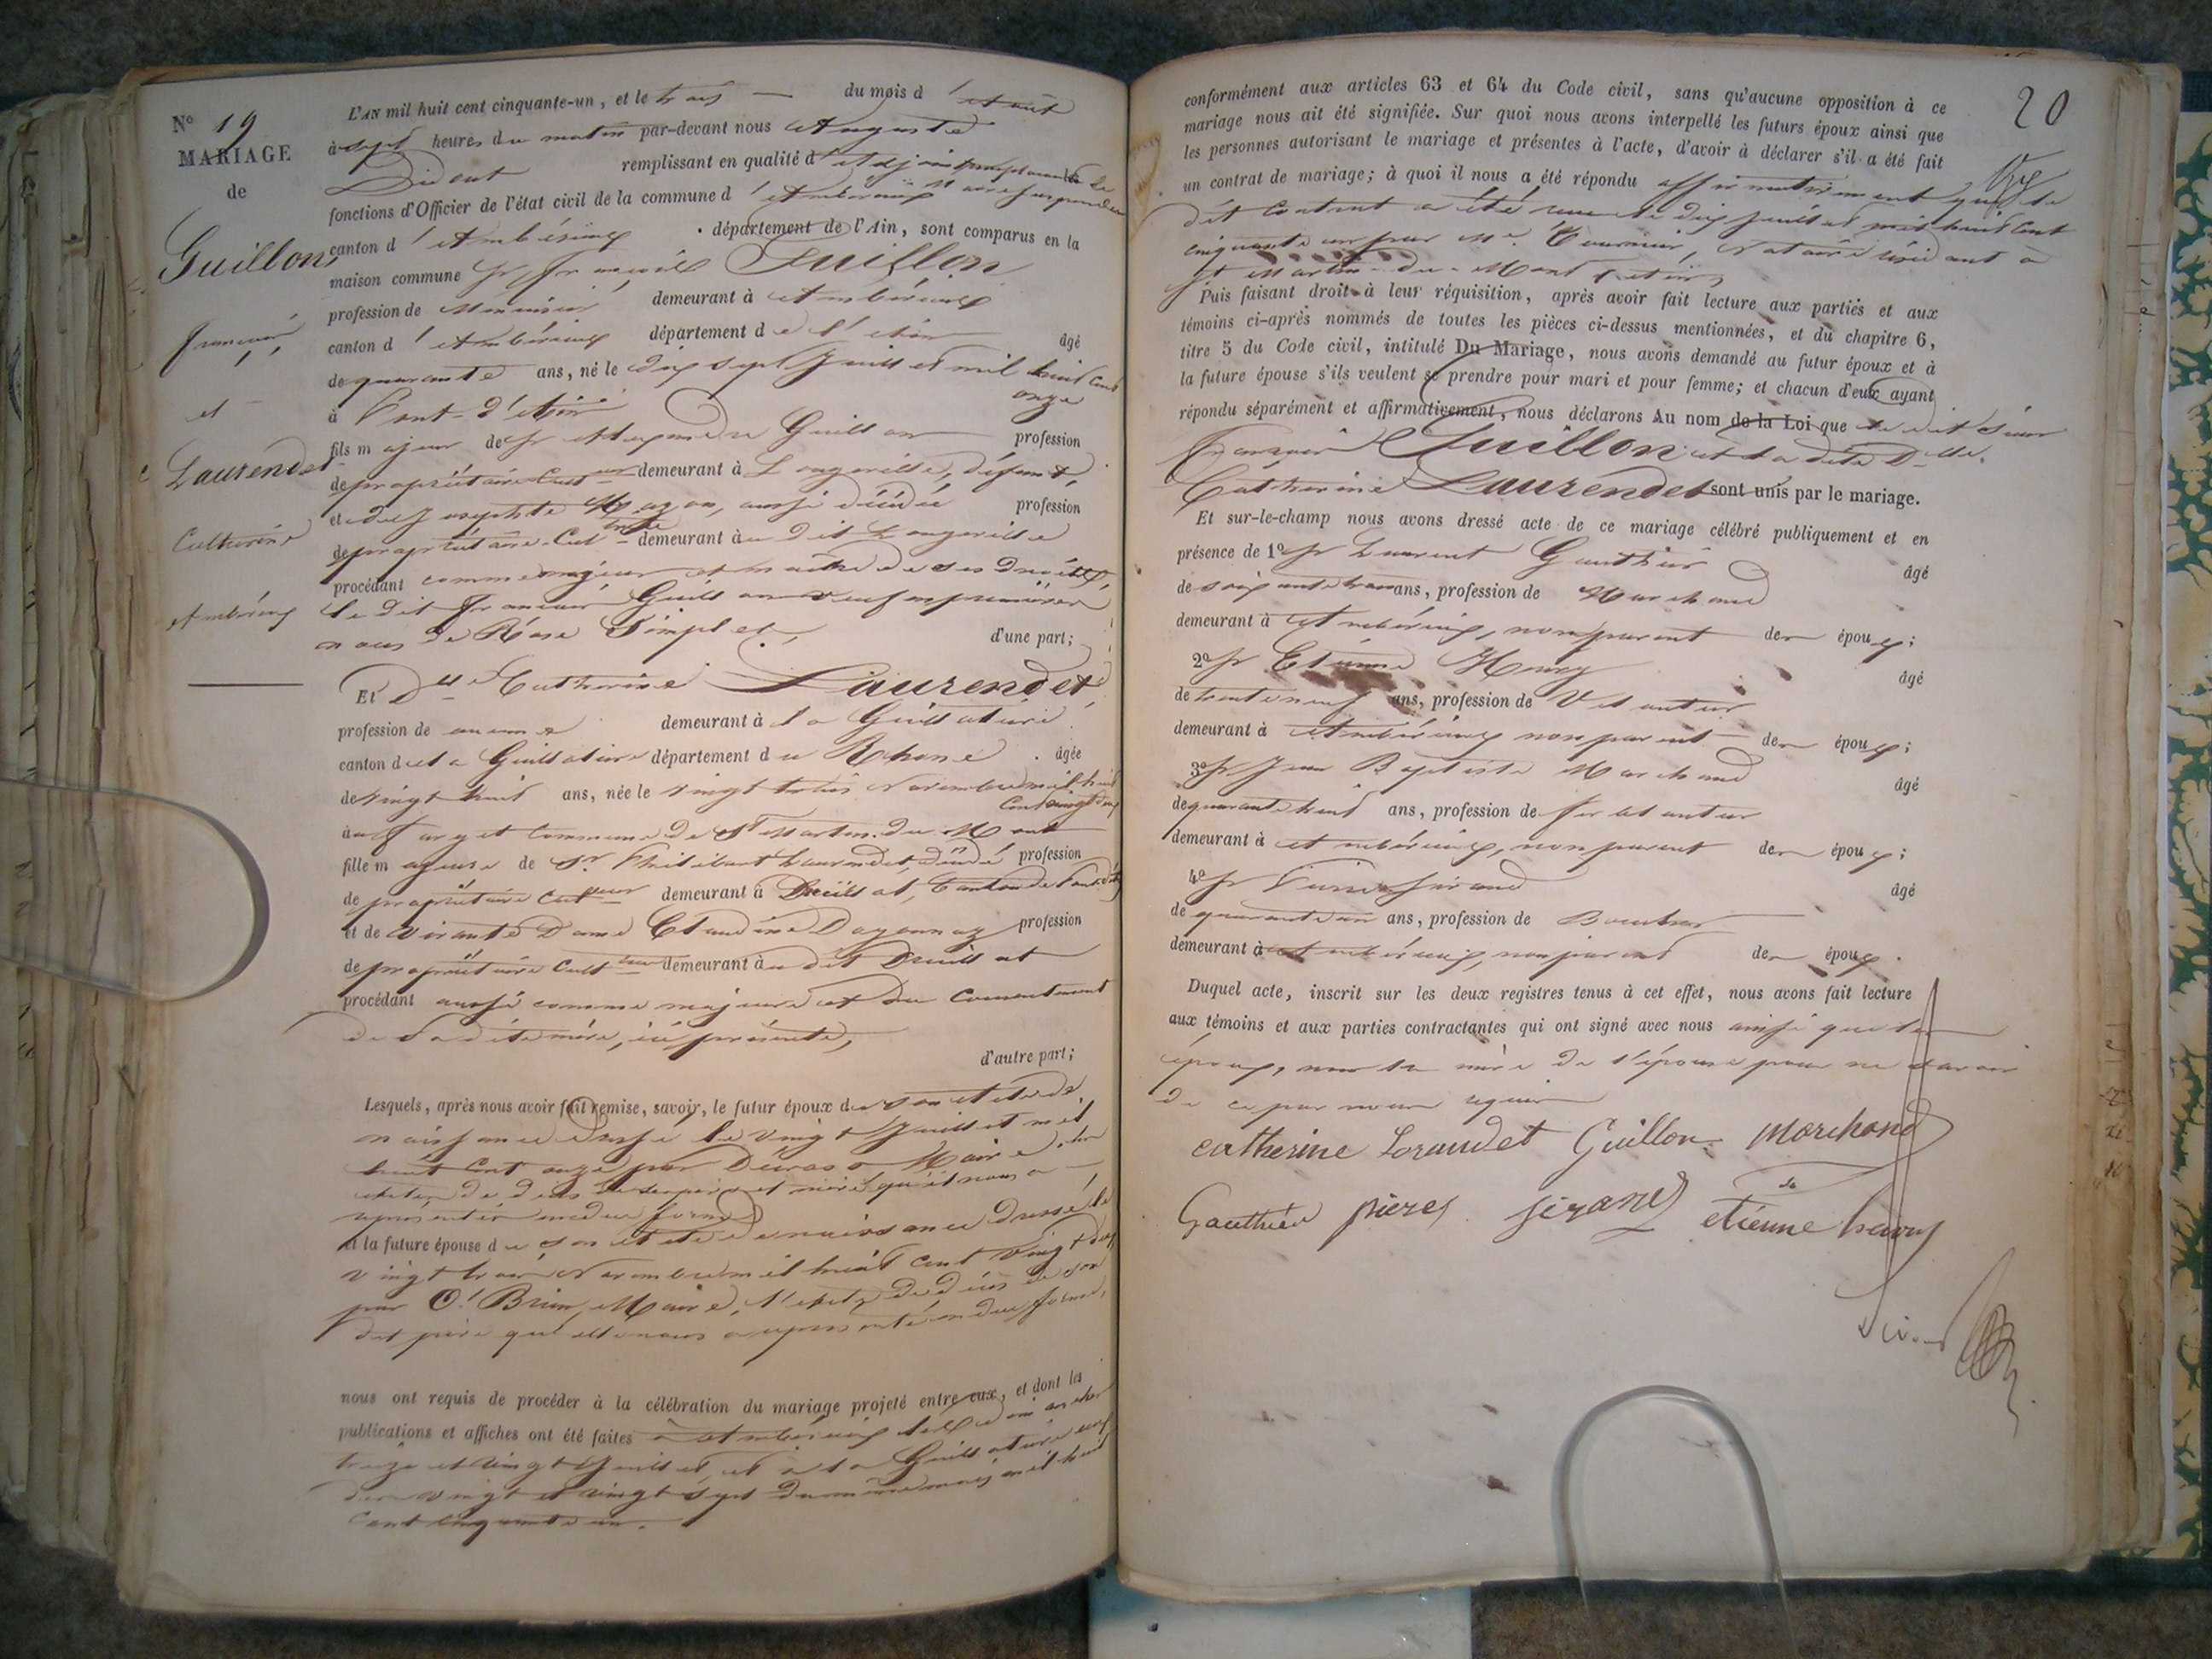 N° 19
MARIAGE
de
Guillon
françois
et
Laurendet
Catherine
Ambérieux
L'AN mil huit cent cinquante-un, et le trois du mois d'Août
à sept heures du matin par-devant nous Auguste
remplissant en qualité d'Adjoint
fonctions d'Officier de l'état civil de la commune d'Ambérieux
canton d'Ambérieux département de l'Ain, sont comparus en la
maison commune Sr françois Guillon
profession de demeurant à Ambérieux
canton d'Ambérieux département de l'Ain âgé
de quarante ans, né le dix sept Juillet mil huit cent
onze
à Pont-d'Ain
fils majeur de Sr Guillon profession
de propriétaire Culteur demeurant à Longeville, défunt,
et de Josephte Mazon, aussi décédée profession
de propriétaire-Cultrice demeurant au dit Longeville
procédant comme majeur et maître de ses droits,
le dit françois Guillon veuf en premières
noces de Rose Simplet, d'une part;
Et Dlle Catherine Laurendet
profession de aucune demeurant à la Guillotière
canton de la Guillotière département du Rhône âgée
de vingt huit ans, née le vingt trois Novembre mil huit
cent vingt deux
au farget Commune de St Martin-du-Mont
fille majeure de Sr. Philibert Laurendet, décédé profession
de propriétaire Culteur demeurant à Druillat, Canton de Pont-d'Ain
et de vivante Dame Claudine profession
de propriétaire Cultrice demeurant au dit Druillat
procédant aussi comme majeure et du consentement
de sa dite mère, ici présente,
d'autre part;
Lesquels, après nous avoir fait remise, savoir, le futur époux de son acte de
naissance dressé le vingt Juillet mil
huit cent onze par Maire, les
actes de décès de ses père et mère qu'il nous a
représentés en due forme
et la future épouse de son acte de naissance dressé le
vingt trois Novembre mil huit cent vingt deux
par Brun, Maire, l'acte de décès de son
dit père qu'elle nous a représenté en due forme,
nous ont requis de procéder à la célébration du mariage projeté entre eux, et dont les
publications et affiches ont été faites à Ambérieux les dimanches
treize et vingt Juillet, et à la Guillotière les
vingt et vingt sept du même mois mil huit
cent cinquante un.
20
conformément aux articles 63 et 64 du Code civil, sans qu'aucune opposition à ce
mariage nous ait été signifiée. Sur quoi nous avons interpellé les futurs époux ainsi que
les personnes autorisant le mariage et présentes à l'acte, d'avoir à déclarer s'il a été fait
un contrat de mariage; à quoi il nous a été répondu affirmativement que le
dit Contrat a été reçu le dix Juillet mil huit cent
cinquante un par Me. Tournier, Notaire résidant à
St Martin-du-Mont (Ain)
Puis faisant droit à leur réquisition, après avoir fait lecture aux parties et aux
témoins ci-après nommés de toutes les pièces ci-dessus mentionnées, et du chapitre 6,
titre 5 du Code civil, intitulé Du Mariage, nous avons demandé au futur époux et à
la future épouse s'ils veulent se prendre pour mari et pour femme; et chacun d'eux ayant
répondu séparément et affirmativement, nous déclarons Au nom de la Loi que le dit Sieur
François Guillon et la dite Dlle.
Catherine Laurendet sont unis par le mariage.
Et sur-le-champ nous avons dressé acte de ce mariage célébré publiquement et en
présence de 1° Sr Laurent Gauthier âgé
de soixante trois ans, profession de Marchand
demeurant à Ambérieux, non parent des époux;
2° Sr Etienne âgé
de trente neuf ans, profession de
demeurant à Ambérieux non parent des époux;
3° Sr Jean Baptiste Marchand âgé
de quarante huit ans, profession de ferblantier
demeurant à Ambérieux, non parent des époux;
4° Sr Pierre Sirand âgé
de quarante un ans, profession de Boucher
demeurant à Ambérieux, non parent des époux.
Duquel acte, inscrit sur les deux registres tenus à cet effet, nous avons fait lecture
aux témoins et aux parties contractantes qui ont signé avec nous ainsi que les
époux, non la mère de l'épouse pour ne savoir
de ce par nous requise
catherine Loraudet Guillon Marchand
Gauthier pieres sirand etienne